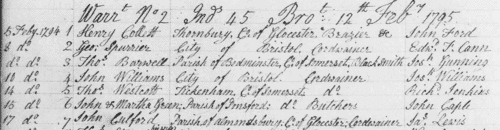 Warr.t No 2 Ind.s 45 Bro.t 12th Feb.y 1795
5 Feby. 1794 1 Henry Collett Thornbury, C.o of Glocester Brazier &c John Ford
8 do 2 Geo. Spurrier City of Bristol Cordwainer Edw.d T. Cann
do do 3 Tho.s Barwell Parish of Bedminster, C.o of Somerset, Black Smith Jos.h Gunning
10 do 4 John Williams City of Bristol Cordwainer Jos.h Williams
14 do 5 Tho.s Westcott Tickenham, C.o of Somerset do Rich.d Jenkins
16 do 6 John & Martha Green; Parish of Durford; do Butchers John Caple
17 do 7 John Culford Parish of Almondsbury; C.o of Glocester; Cordwainer Ja.s Lewis